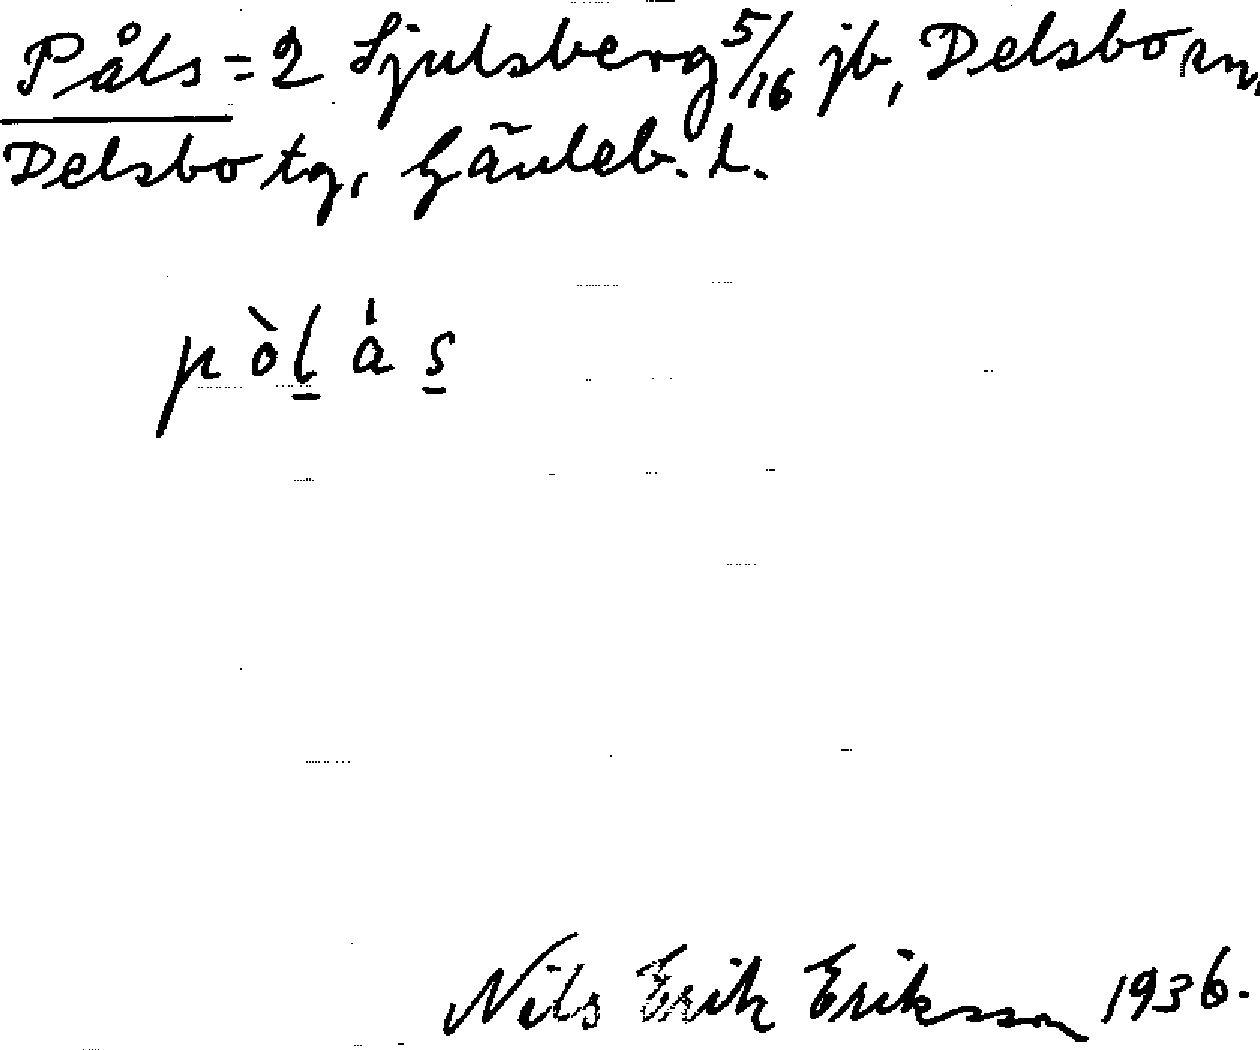 Påls = 2 Sjulsberg 5/16 jb, Delsbo sn,
Delsbo tg, Gävleb. l.
pòl̠ ás̠
Nils Erik Eriksson 1936.